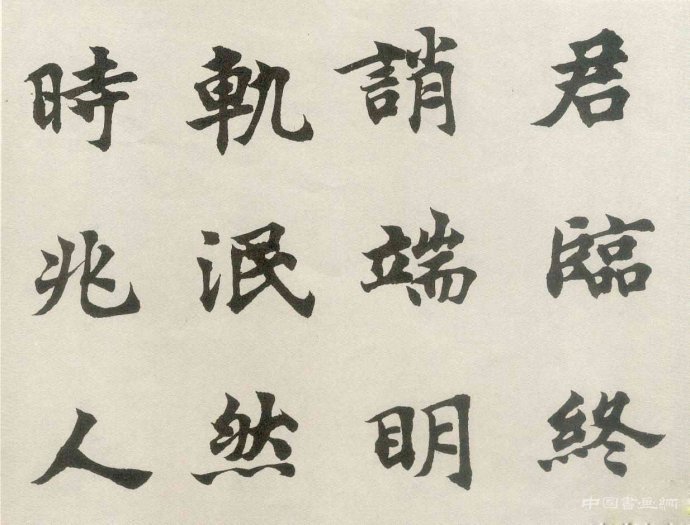 君臨終
誚端明
軌泯然
時兆人
中国書画網